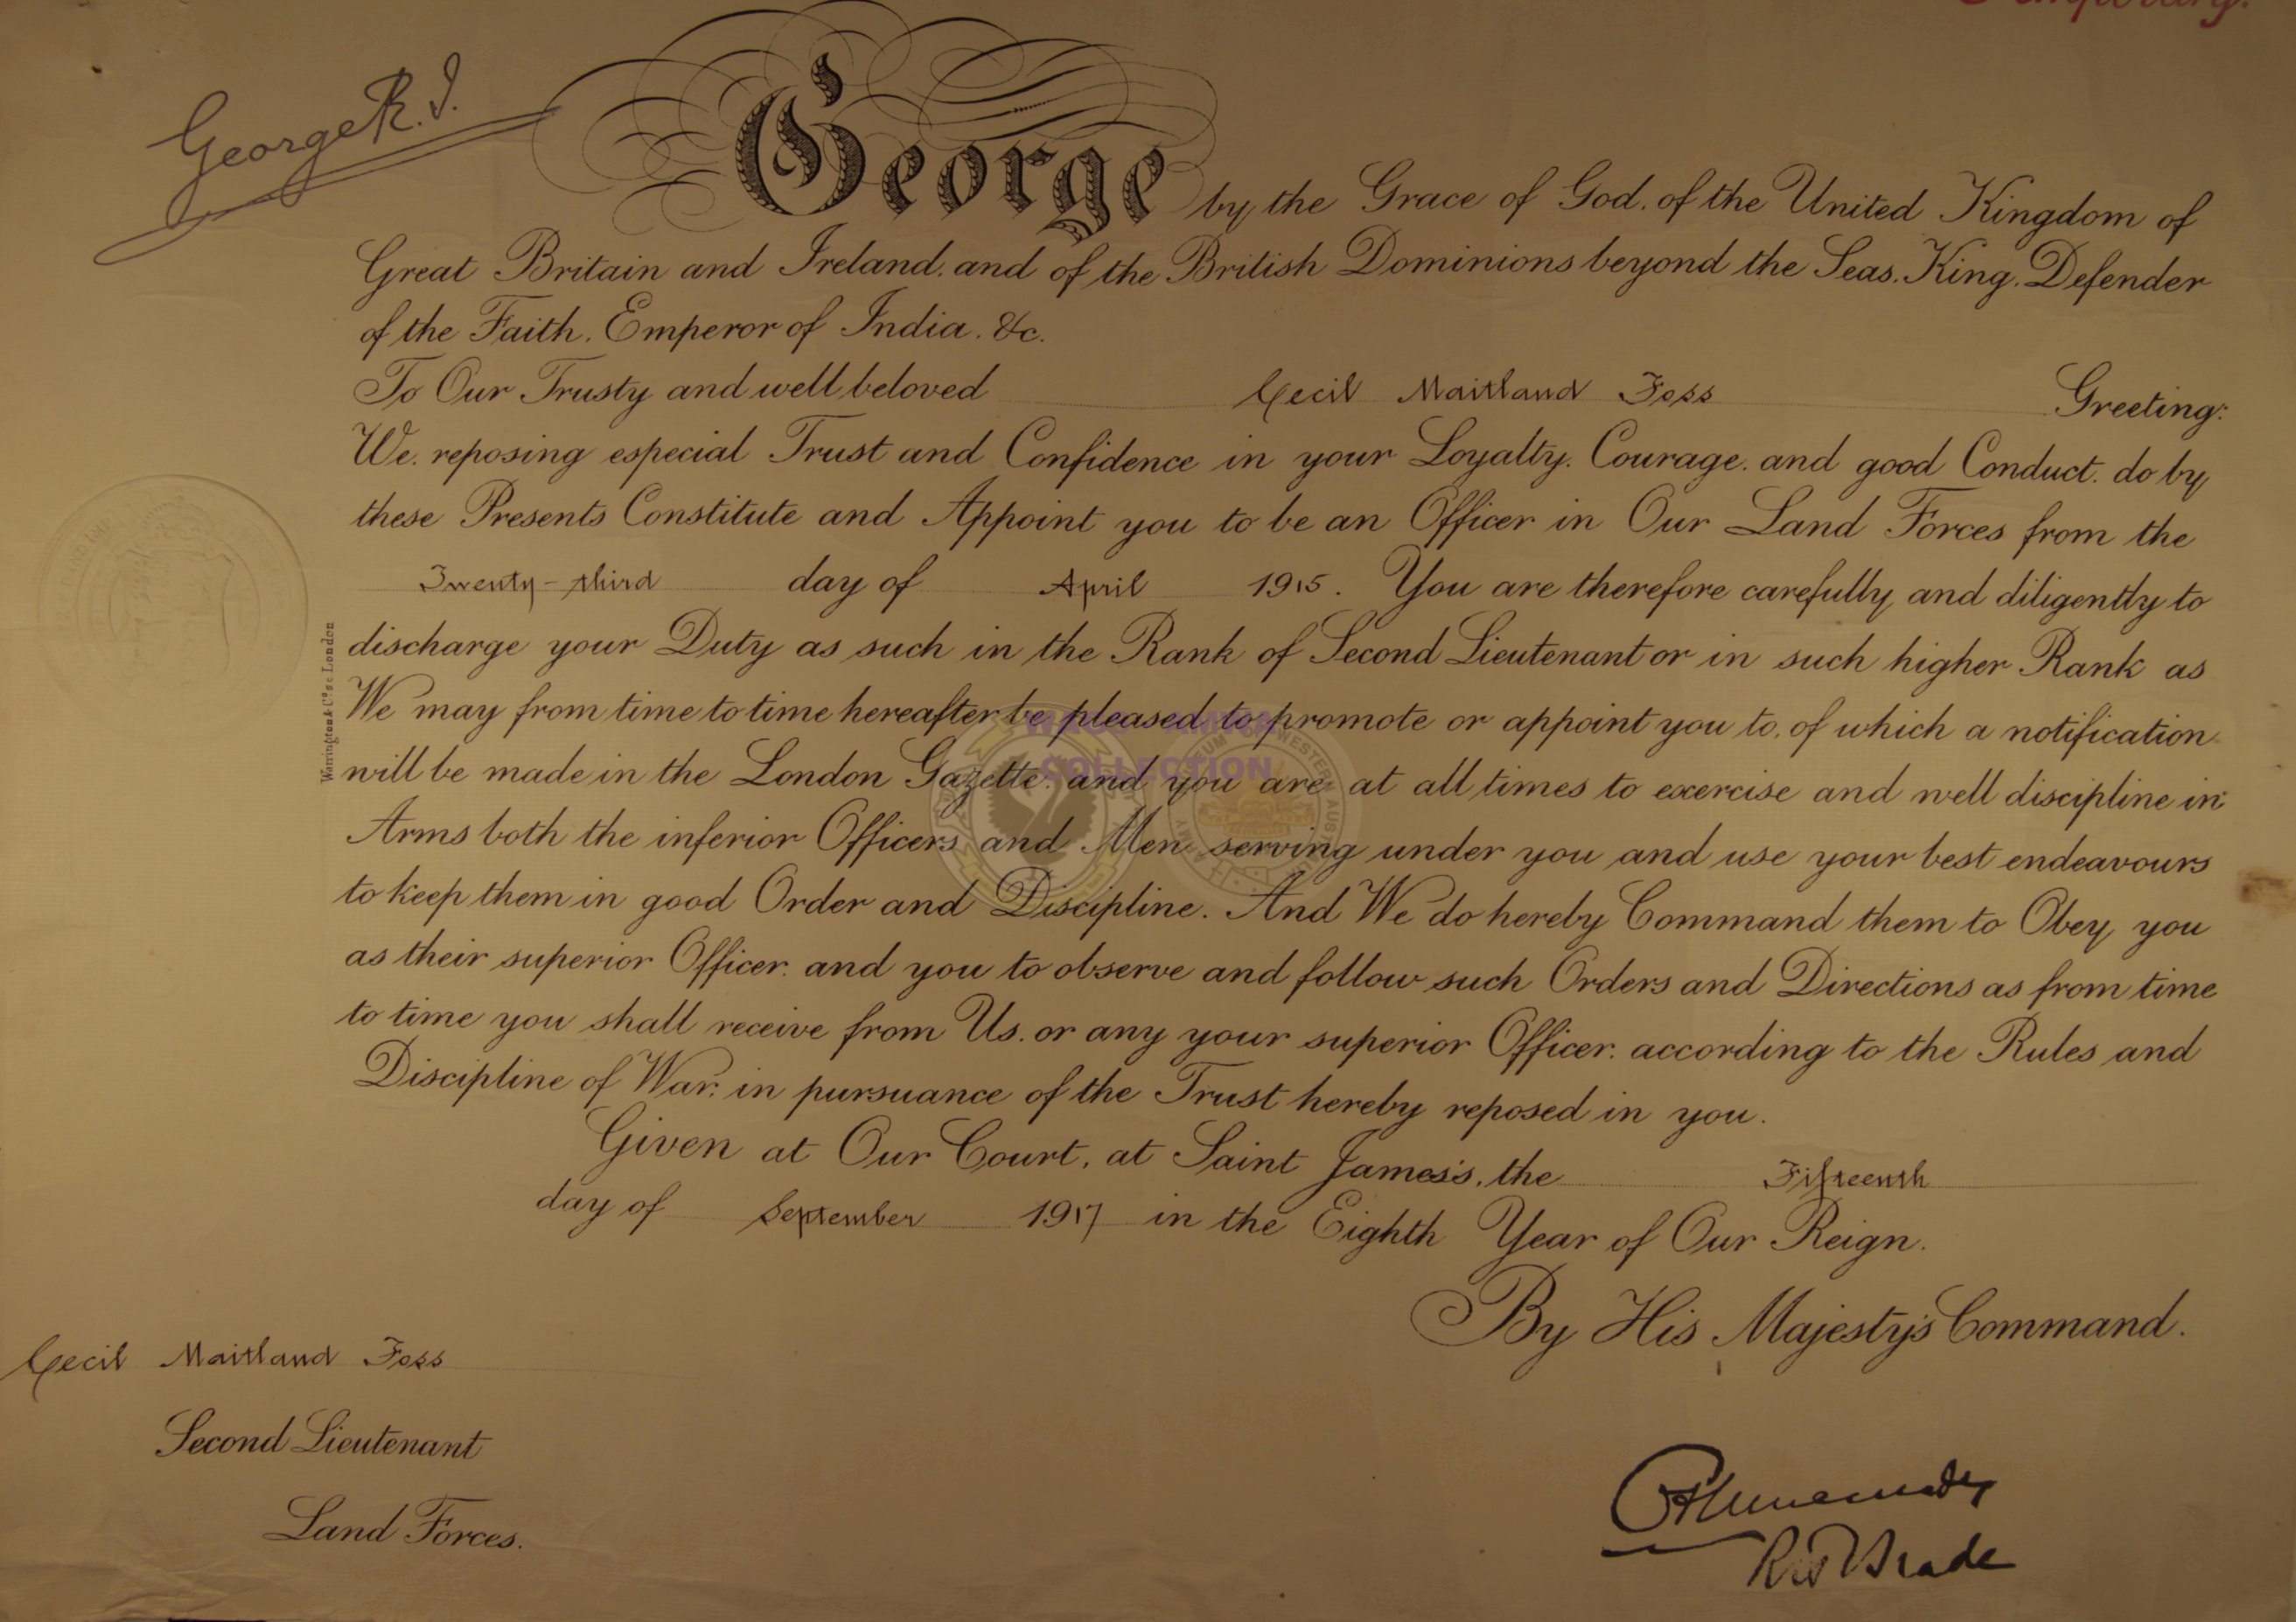 Temporary.
George R.I.
George by the Grace of God, of the United Kingdom of
Great Britain and Ireland, and of the British Dominions beyond the Seas, King, Defender
of the Faith, Emperor of India, &c.
To Our Trusty and well beloved Cecil Maitland Foss Greeting:
We, reposing especial Trust and Confidence in your Loyalty, Courage, and good Conduct, do by
these Presents Constitute and Appoint you to be an Officer in Our Land Forces from the
Twenty-third day of April 1915. You are therefore carefully and diligently to
discharge your Duty as such in the Rank of Second Lieutenant or in such higher Rank as
We may from time to time hereafter be pleased to promote or appoint you to, of which a notification
will be made in the London Gazette, and you are at all times to exercise and well discipline in
Arms both the inferior Officers and Men serving under you and use your best endeavours
to keep them in good Order and Discipline. And We do hereby Command them to Obey you
as their superior Officer, and you to observe and follow such Orders and Directions as from time
to time you shall receive from Us, or any your superior Officer, according to the Rules and
Discipline of War, in pursuance of the Trust hereby reposed in you.
Given at Our Court, at Saint James's, the Fifteenth
day of September 1917 in the Eighth Year of Our Reign.
By His Majesty's Command.
Cecil Maitland Foss
Second Lieutenant
Land Forces.
Warrington & Co. London
COLLECTION
R H Brade